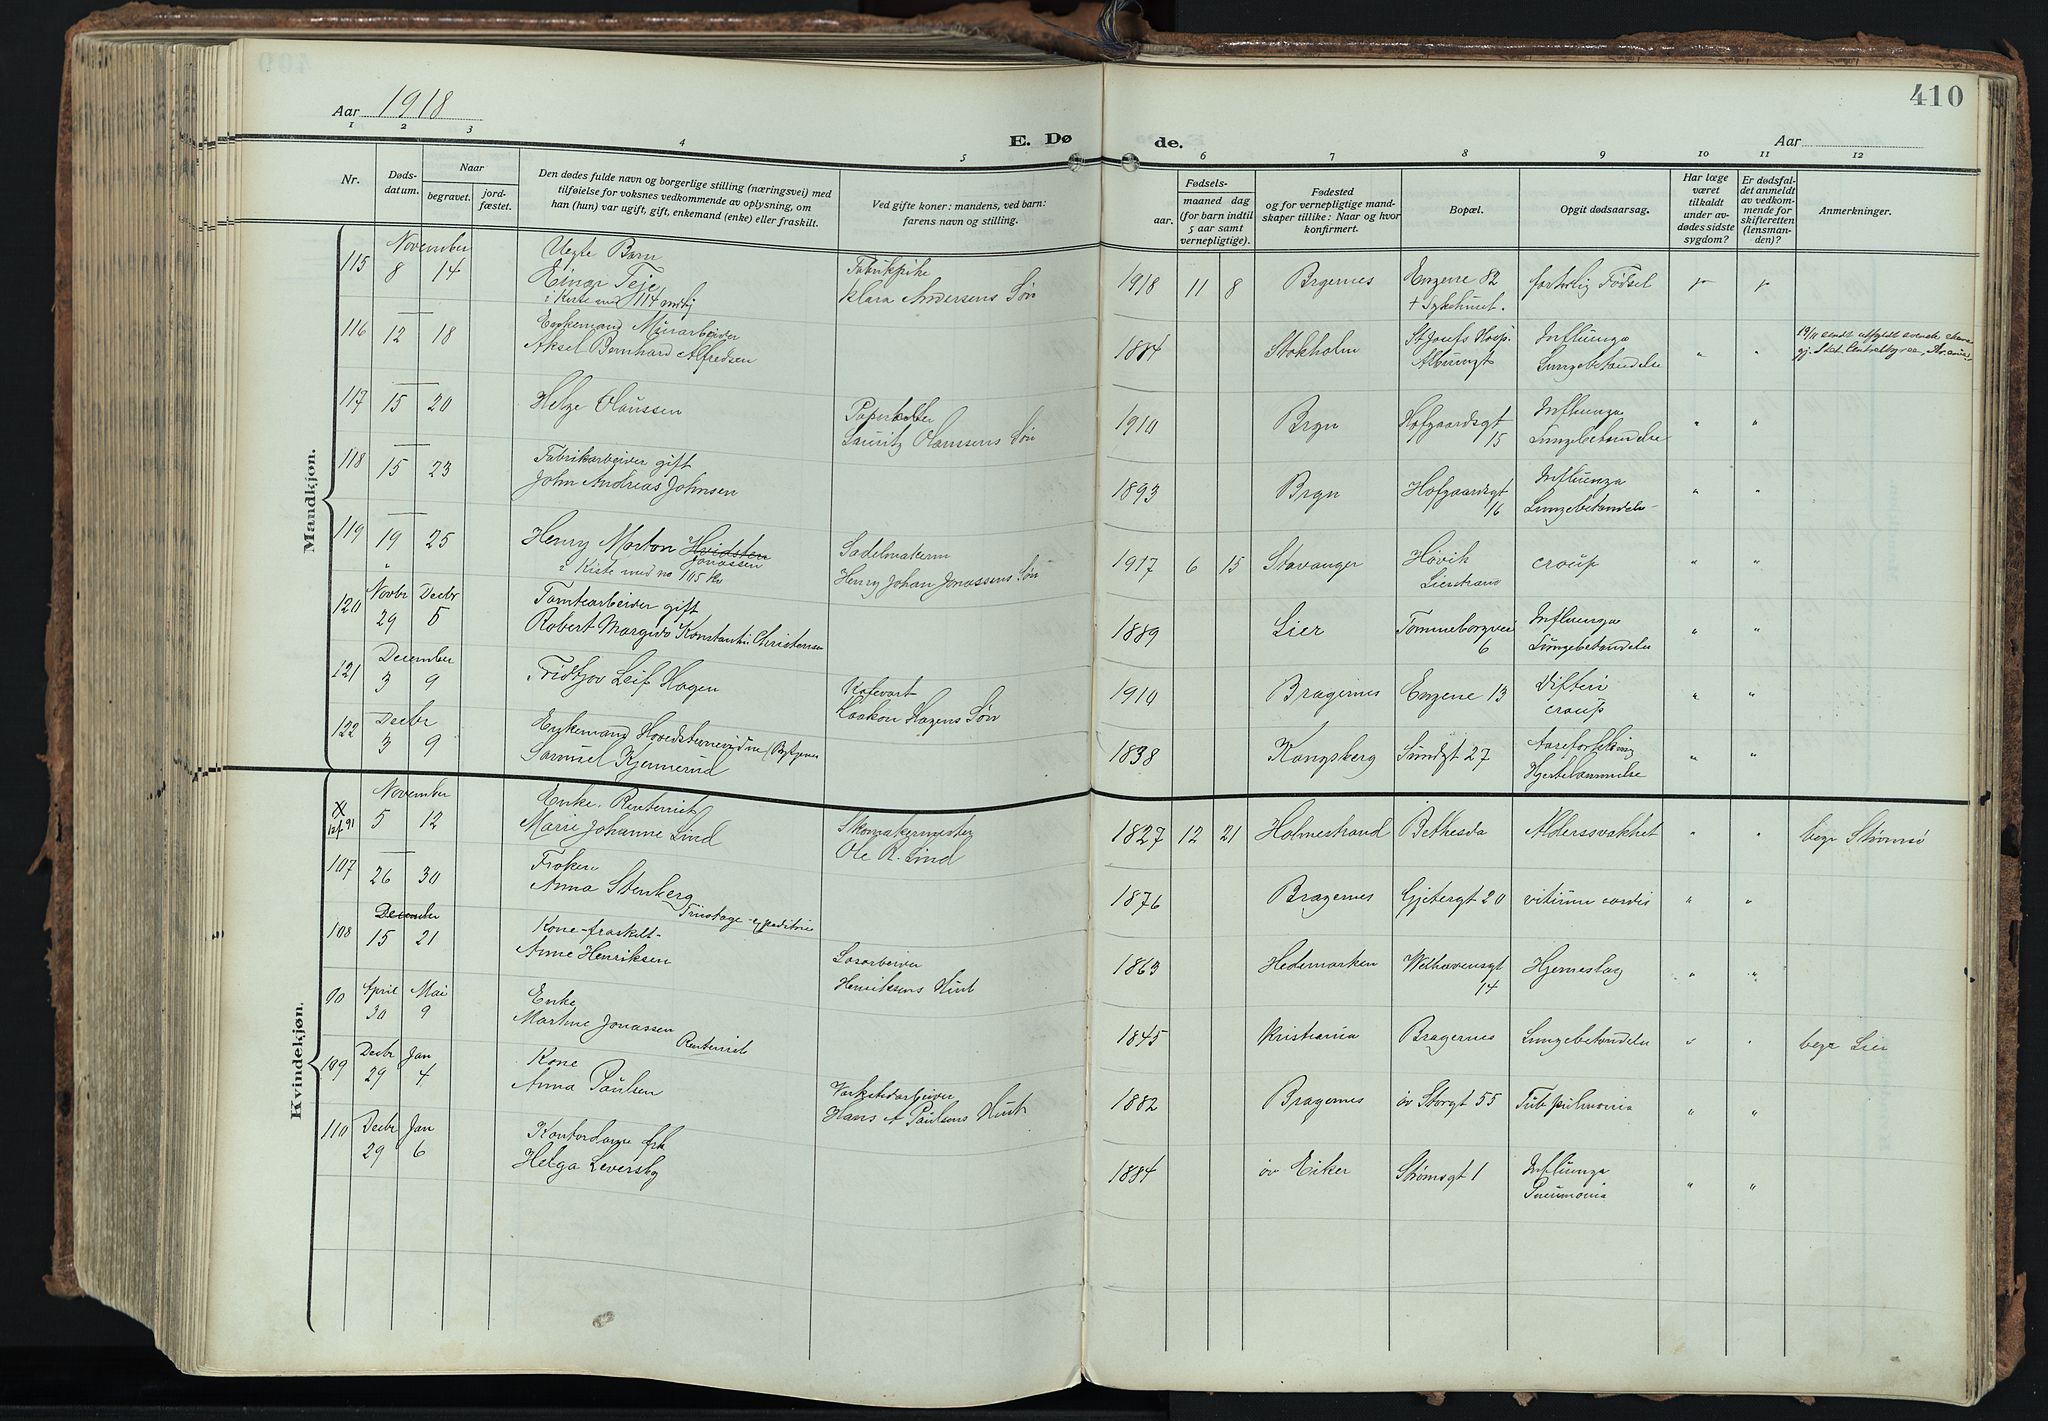 410
Aar 1918
E. Dø
de.
Aar
1 2 3 4 5 6 7 8 9 10 11 12
Nr.
Døds-
datum.
Naar
begravet.
jord-
fæstet.
Den dødes fulde navn og borgerlige stilling (næringsvei) med
tilføielse for voksnes vedkommende av oplysning, om
han (hun) var ugift, gift, enkemand (enke) eller fraskilt.
Ved gifte koner: mandens, ved barn:
farens navn og stilling.
Fødsels-
aar.
maaned dag
(for barn indtil
5 aar samt
vernepligtige).
Fødested
og for vernepligtige mand-
skaper tillike: Naar og hvor
konfirmert.
Bopæl.
Opgit dødsaarsag.
Har læge
været
tilkaldt
under av-
dødes sidste
sygdom?
Er dødsfal-
det anmeldt
av vedkom-
mende for
skifteretten
(lensman-
den)?
Anmerkninger.
Mandkjøn.
November
115 8 14
Uegte Barn
Einar Teje
i Kiste med 114
Fabrikpike
Klara Andersens Søn
1918 11 8 Bragernes
Engene 82
+ Sykehuset.
fortidlig Fødsel
116 12 18
Enkemand Murarbeider
Aksel Bernhard Alfredsen
1884 Stokholm
St Josefs Hosp.
Albumsgt
Influenza
Lungebetændelse
" "
117 15 20
Helge Olaussen
Lauritz Olaussens Søn
1910 Brgn
Hofgaardsgt
15
Influenza
Lungebetændelse
" "
118 15 23
Fabrikarbeider gift
John Andreas Johnsen
1893 Brgn
Hofgaardsgt
16
Influenza
Lungebetændelse
" "
119 19 25
Henry Morton Hvidsten
Jonassen
i Kiste med no 105 Kv
Sadelmakerm
Henry Johan Jonassens Søn
1917 6 15 Stavanger
Høvik
Lierstrand
croup
" "
120 Novbr Decbr
29 5
Tomtearbeider gift
Robert Margido Konstantin Christensen
1889 Lier
Tomineborgvei
6
Influenza
Lungebetændelse
" "
121 December
3 9
Fridtjov Leif Hagen
Kafevært
Haakon Hagens Søn
1910 Bragernes Engene 13
Difteri
croup
" "
122 Decbr
3 9
Enkemand
Samuel Kjennerud
1838 Kongsberg Sundgt 27
Aareforkalkning
Hjertelammelse
" "
Kvindekjøn.
November
5 12
Enke. Rentenist
Marie Johanne Lind
Skomakermester
Ole R. Lind
1827 12 21 Holmestrand Bethesda Alderssvakhet " " begr Strømsø
107 26 30
Frøken
Anna Stenberg
Tricotage-expeditrice
1876 Bragernes Gjetergt 20 vitium cordis " "
December
108 15 21
Kone-fraskilt-
Anne Henriksen
Løsarbeider
Henriksens Hust
1863 Hedemarken
Welhavensgt
14
Hjerneslag " "
90 April Mai
30 9
Enke
Martine Jonassen
Rentenist
1845 Kristiania Bragernes Lungebetændelse " " begr Lier
109 Decbr Jan
29 4
Kone
Anna Paulsen
Verkstedarbeider
Hans A Paulsens Hust
1882 Bragernes øv Storgt 55 Tub pulmonia " "
110 Decbr Jan
29 6
Kontordame frk
Helga Leversby
1884 øv Eiker Strømsgt 1
Influenza
Pneumonia
" "